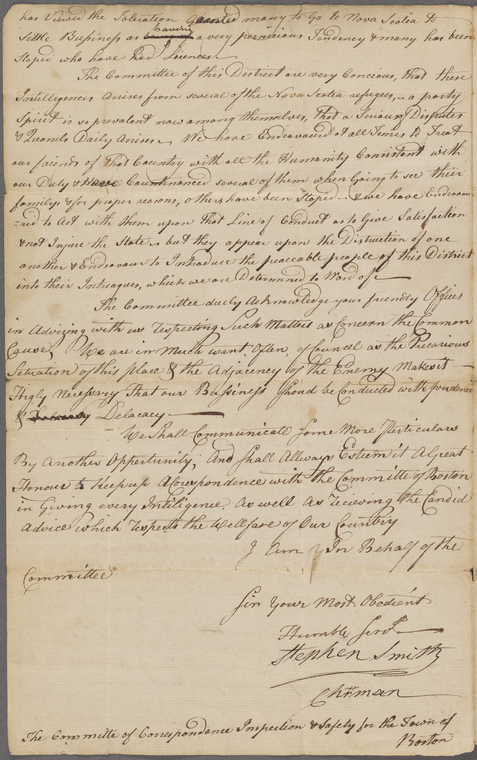 has Viewed the Toleration Granted many to Go to Nova Scotia to
Settle Bussiness as having a very pernicious Tendency & many has been
Stoped who have had Licences
The Committee of this District are very Concious, That these
Intelligences Arises from several of the Nova Scotia refugees, a party
Spirit is so prevalent now among themselves, That a Serious Disputes
& Quarrels Daily Arises. We have Endeavoured at all Times to Treat
our friends of That Country with all the Humanity Consistent with
our Duty & Have Countenanced several of them when Going to see their
familys & for proper reasons, others have been Stoped & we have Endeavou
red to Act with them upon That Line of Conduct as to Give Satisfaction
& not Injure the State, but they appear upon the Distruction of one
another & Endeavour to Introduce the peaceable people of this District
into their Intreagues, which we are Determined to Word of
The Committee duely Acknowledge your friendly Offices
in Advising with us respecting Such Matters as Concern the Common
Cause, We are in Much want Often, of Councel as the Precarious
Situation of this place & the Adjacency of the Enemy Makes it
Higly Necessary That our Bussiness Shoud be Conducted with prudence
& Delacacy
We Shall Communicate Some More Particulars
By Another Opportunity, And Shall Allways Esteem it A Great
Honour to keep up A Corespondence with the Committe of Boston
in Giving every Inteligence, as well As receiving the Candid
Advice which respects the Wellfare of Our Country
I Am for Behalf of the
Committee
Sir Your Most Obedient
Humble Servt
Stephen Smith
Chrman
The Committe of Correspondence Inspection & Safety for the Town of
Boston